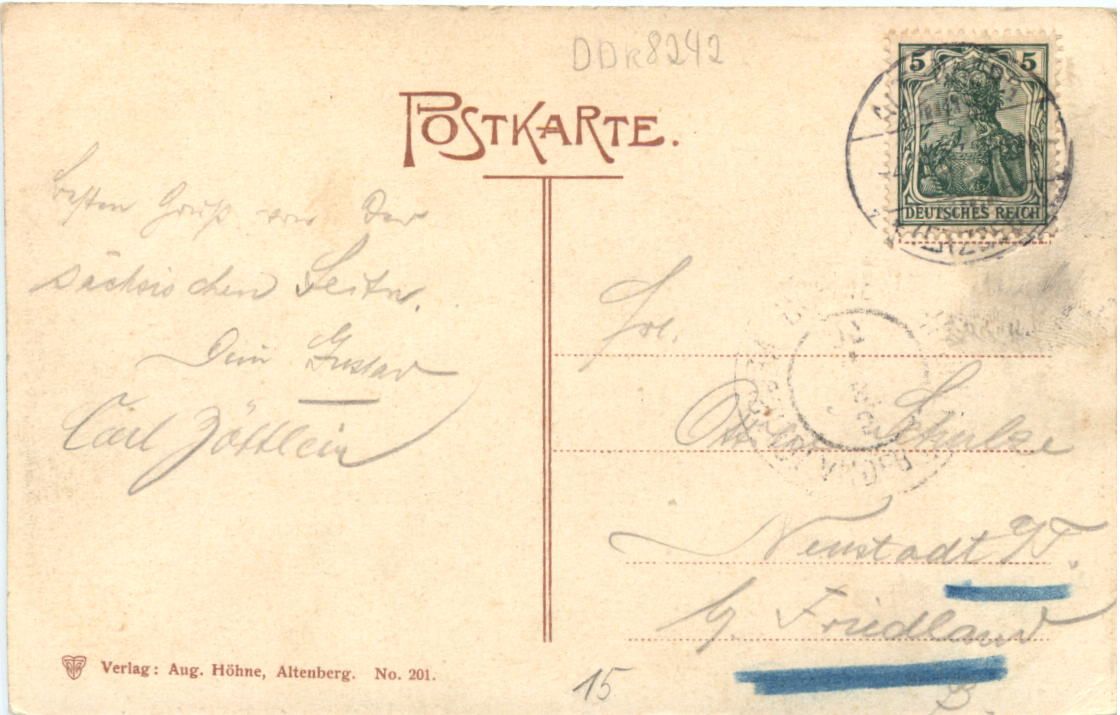 DDR8242
POSTKARTE.
5 5
DEUTSCHES REICH
besten Gruß von der
sächsischen Seite.
Dein Gustav
Carl
Frl.
Schulze
Neustadt
b. Friedland
B.
15
Verlag: Aug. Höhne, Altenberg. No. 201.